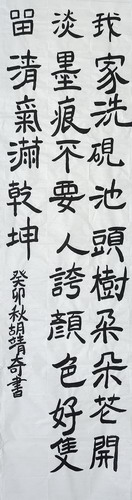 我家洗硯池頭樹朵朵花開
淡墨痕不要人誇顏色好隻
留清氣滿乾坤
癸卯秋胡靖奇書